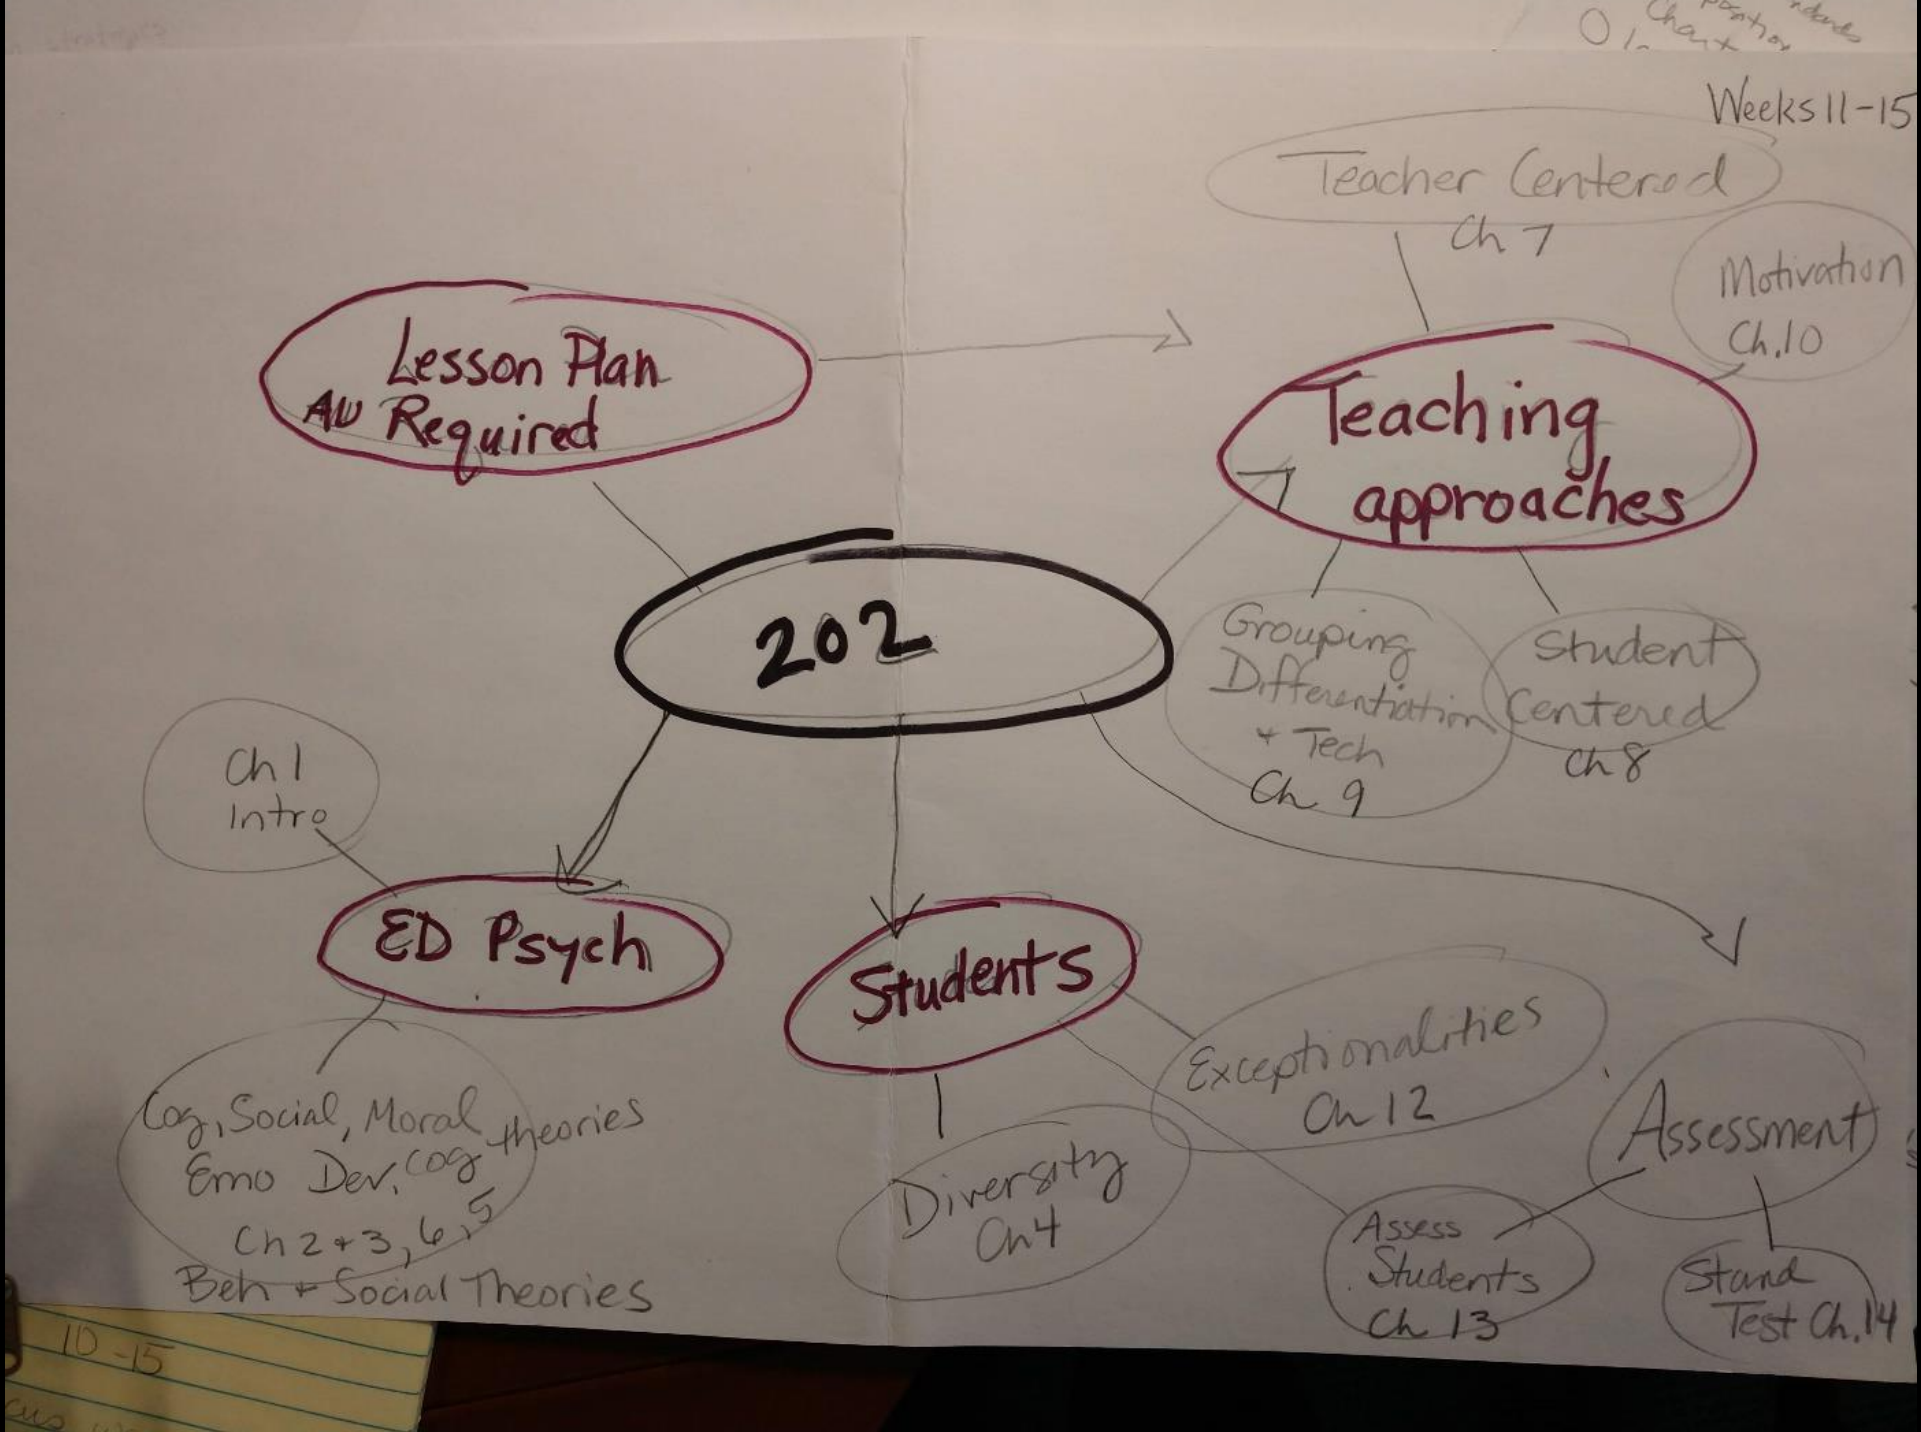 Chart
Weeks 11-15
Teacher Centered
Ch 7
Motivation
Ch.10
Lesson Plan
All Required
Teaching
approaches
202
Grouping
Differentiation
+ Tech
Ch 9
Student
Centered
Ch 8
Ch 1
Intro
ED Psych
Students
Exceptionalities
Ch 12
Cog, Social, Moral
Emo Dev, cog theories
Ch 2 + 3, 6, 5
Beh + Social Theories
Diversity
Ch 4
Assessment
Assess
Students
Ch 13
Stand
Test Ch.14
10-15